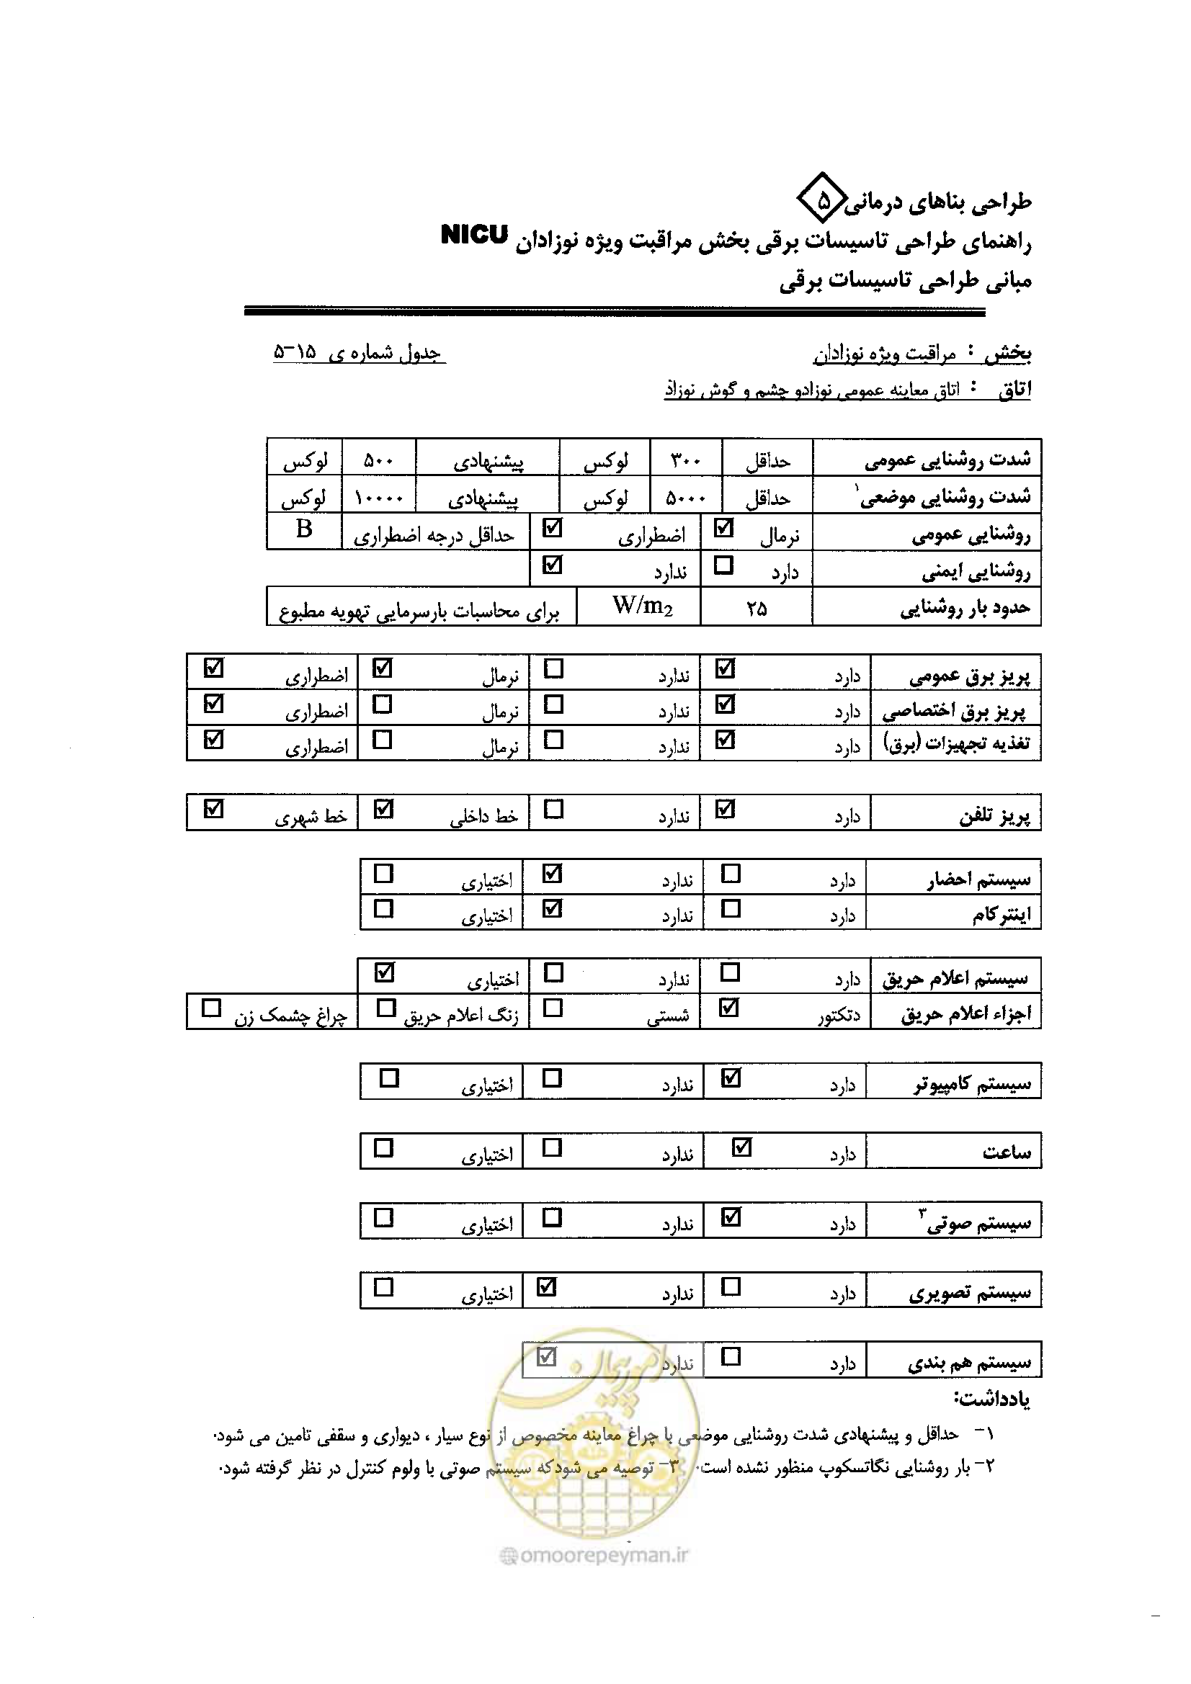 طراحی بناهای درمانی ۵
راهنمای طراحی تاسیسات برقی بخش مراقبت ویژه نوزادان NICU
مبانی طراحی تاسیسات برقی
بخش : مراقبت ویژه نوزادان جدول شماره ی ۱۵-۵
اتاق : اتاق معاینه عمومی نوزادو چشم و گوش نوزاد
شدت روشنایی عمومی حداقل ۳۰۰ لوکس پیشنهادی ۵۰۰ لوکس
شدت روشنایی موضعی۱ حداقل ۵۰۰۰ لوکس پیشنهادی ۱۰۰۰۰ لوکس
روشنایی عمومی نرمال ☑ اضطراری ☑ حداقل درجه اضطراری B
روشنایی ایمنی دارد ☐ ندارد ☑
حدود بار روشنایی ۲۵ W/m2 برای محاسبات بارسرمایی تهویه مطبوع
پریز برق عمومی دارد ☑ ندارد ☐ نرمال ☑ اضطراری ☑
پریز برق اختصاصی دارد ☑ ندارد ☐ نرمال ☐ اضطراری ☑
تغذیه تجهیزات (برق) دارد ☑ ندارد ☐ نرمال ☐ اضطراری ☑
پریز تلفن دارد ☑ ندارد ☐ خط داخلی ☑ خط شهری ☑
سیستم احضار دارد ☐ ندارد ☑ اختیاری ☐
اینترکام دارد ☐ ندارد ☑ اختیاری ☐
سیستم اعلام حریق دارد ☐ ندارد ☐ اختیاری ☑
اجزاء اعلام حریق دتکتور ☑ شستی ☐ زنگ اعلام حریق ☐ چراغ چشمک زن ☐
سیستم کامپیوتر دارد ☑ ندارد ☐ اختیاری ☐
ساعت دارد ☑ ندارد ☐ اختیاری ☐
سیستم صوتی۳ دارد ☑ ندارد ☐ اختیاری ☐
سیستم تصویری دارد ☐ ندارد ☑ اختیاری ☐
سیستم هم بندی دارد ☐ ندارد ☑
یادداشت:
۱- حداقل و پیشنهادی شدت روشنایی موضعی با چراغ معاینه مخصوص از نوع سیار ، دیواری و سقفی تامین می شود.
۲- بار روشنایی نگاتسکوپ منظور نشده است. ۳- توصیه می شودکه سیستم صوتی با ولوم کنترل در نظر گرفته شود.
امور پیمان
@omoorepeyman.ir